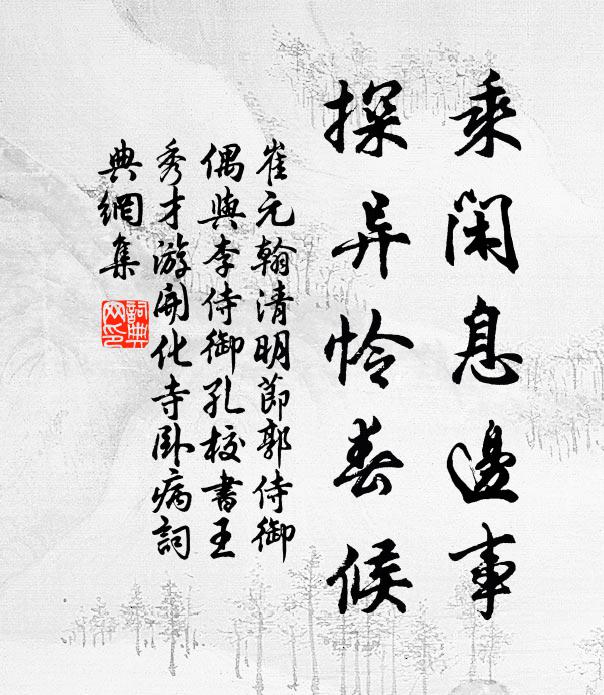 乘闲息边事
探异怜春候
崔元翰清明節郭侍御
偶與李侍御孔校書王
秀才游開化寺卧病詞
典網集
詞典网印